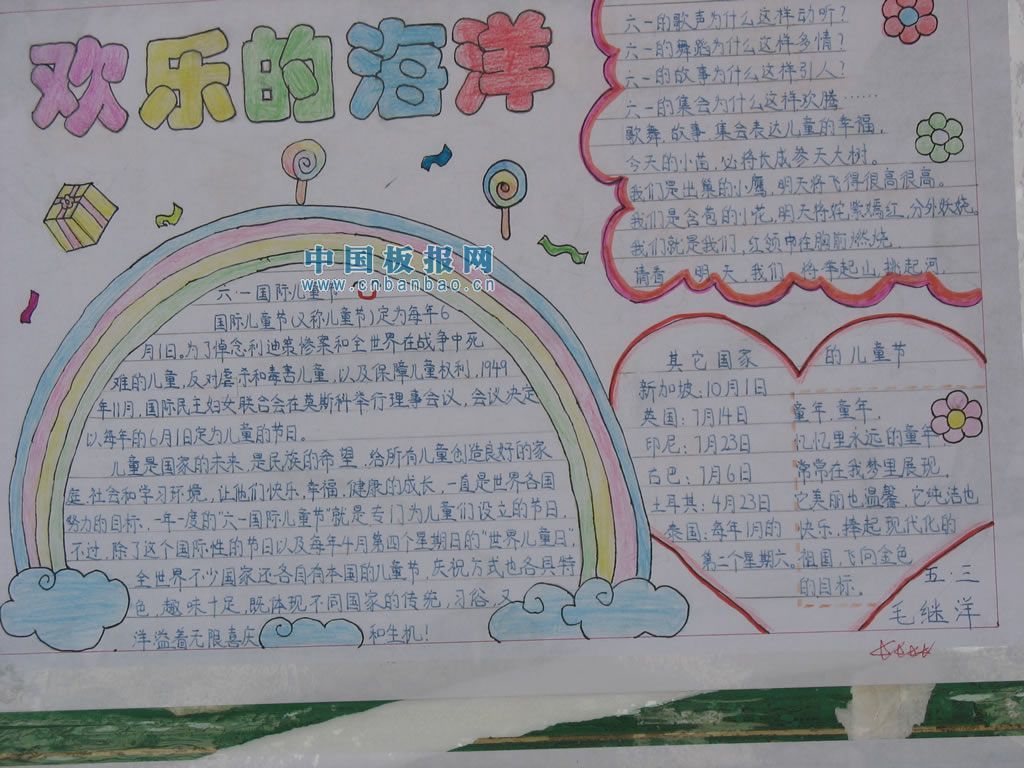 欢乐的海洋
六一的歌声为什么这样动听?
六一的舞蹈为什么这样多情?
六一的故事为什么这样引人?
六一的集会为什么这样欢腾……
歌舞,故事,集会表达儿童的幸福,
今天的小苗,必将长成参天大树。
我们是出巢的小鹰,明天将飞得很高很高。
我们是含苞的小花,明天将姹紫嫣红,分外妖娆。
我们就是我们,红领巾在胸前燃烧,
请看,明天,我们,将举起山,挑起河.
中国板报网
www.cnbanbao.cn
六·一国际儿童节
国际儿童节(又称儿童节)定为每年6
月1日。为了悼念利迪策惨案和全世界在战争中死
难的儿童,反对虐杀和毒害儿童,以及保障儿童权利,1949
年11月,国际民主妇女联合会在莫斯科举行理事会议,会议决定
以每年的6月1日定为儿童的节日。
儿童是国家的未来,是民族的希望,给所有儿童创造良好的家
庭,社会和学习环境,让他们快乐,幸福,健康的成长,一直是世界各国
努力的目标,一年一度的“六一国际儿童节”就是专门为儿童们设立的节日,
不过,除了这个国际性的节日以及每年4月第四个星期日的“世界儿童日”,
全世界不少国家还各自有本国的儿童节,庆祝方式也各具特
色,趣味十足,既体现不同国家的传统,习俗,又
洋溢着无限喜庆和生机!
其它国家的儿童节
新加坡:10月1日
英国:7月14日
印尼:7月23日
古巴:7月6日
土耳其:4月23日
泰国:每年1月的
第二个星期六。
童年,童年,
忆忆里永远的童年
常常在我梦里展现,
它美丽也温馨,它纯洁也
快乐,捧起现代化的
祖国,飞向金色
的目标.
五·三
毛继洋